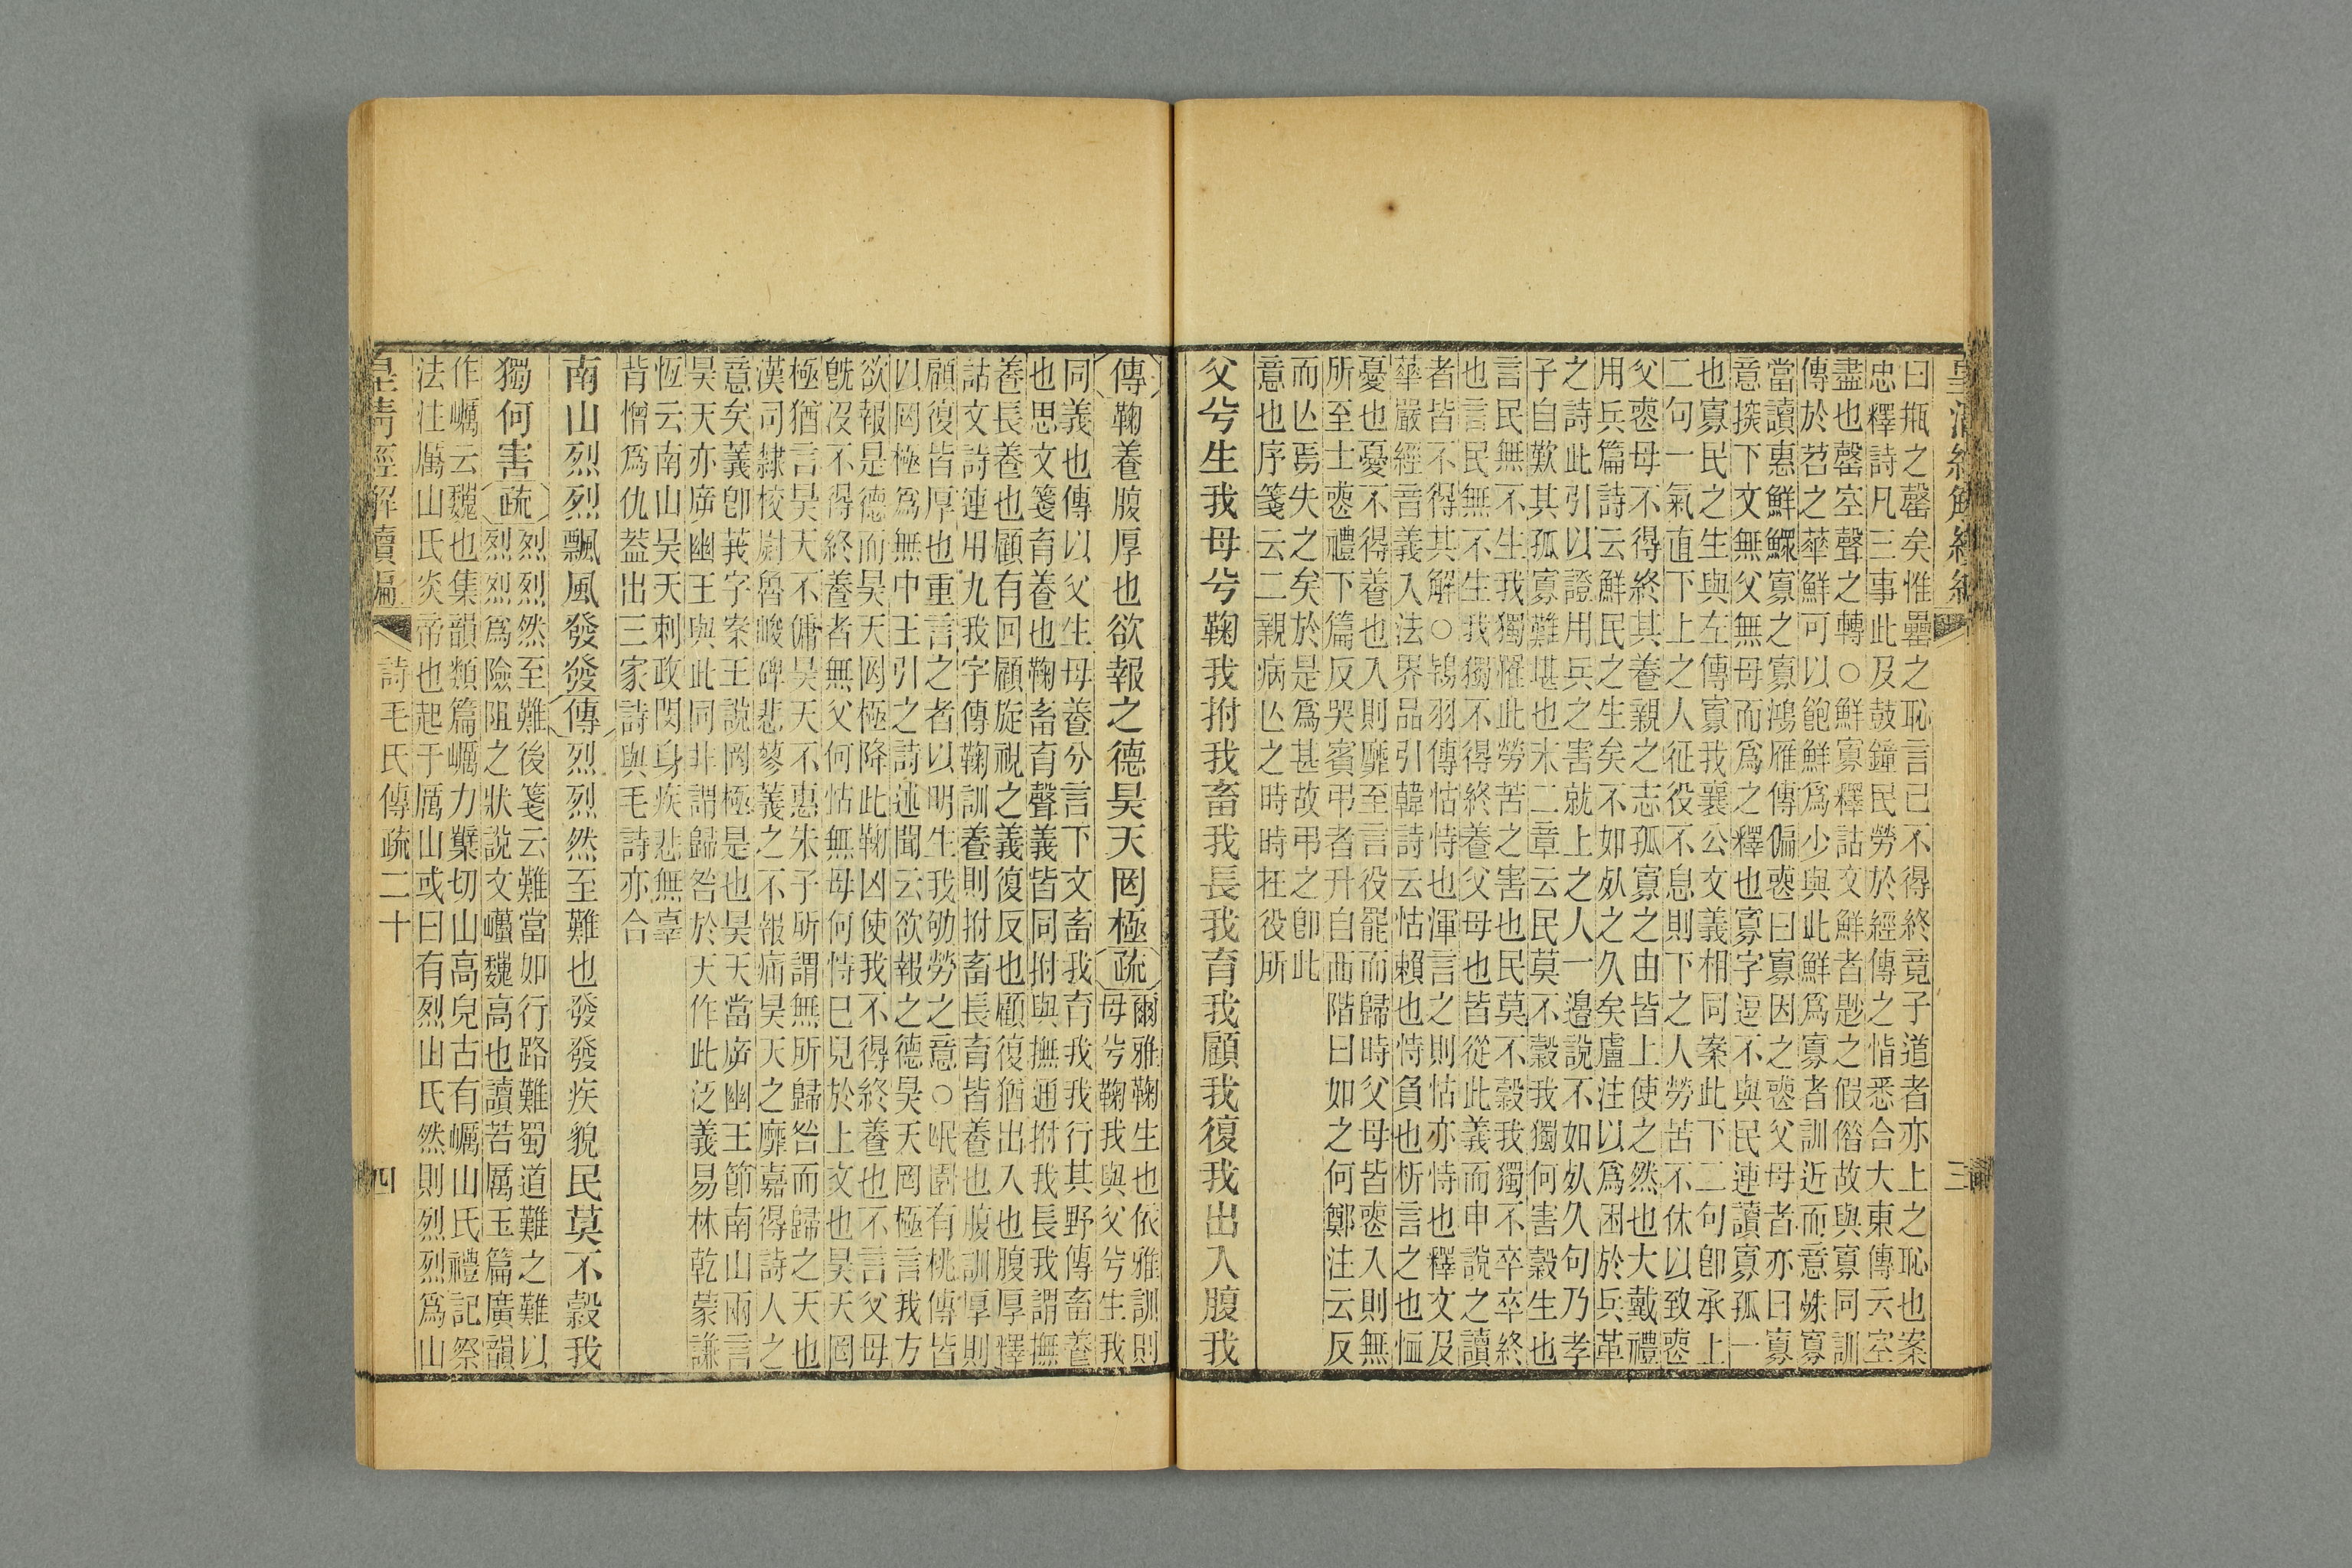 皇清經解續編
三
曰缾之罄矣惟罍之恥言已不得終竟子道者亦上之恥也案
忠釋詩凡三事此及鼓鐘民勞於經傳之恉悉合大東傳云空
盡也罄空聲之轉○鮮寡釋詁文鮮者尟之假偕故與寡同訓
傳於苕之華鮮可以飽鮮爲少與此鮮爲寡者訓近而意殊寡
當讀惠鮮鰥寡之寡鴻雁傳偏喪曰寡因之喪父母者亦曰寡
意揆下文無父無母而爲之釋也寡字逗不與民連讀寡孤一
也寡民之生與左傳寡我襄公文義相同案此下二句卽承上
二句一氣直下上之人征役不息則下之人勞苦不休以致喪
父喪母不得終其養親之志孤寡之由皆上使之然也大戴禮
用兵篇詩云鮮民之生矣不如死之久矣盧注以爲困於兵革
之詩此引以證用兵之害就上之人一邊說不如死久句乃孝
子自歎其孤寡難堪也末二章云民莫不穀我獨何害穀生也
言民無不生我獨罹此勞苦之害也民莫不穀我獨不卒卒終
也言民無不生我獨不得終養父母也皆從此義而申說之讀
者皆不得其解○鴇羽傳怙恃也渾言之則怙亦恃也釋文及
華嚴經音義入法界品引韓詩云怙賴也恃負也析言之也恤
憂也憂不得養也入則靡至言役罷而歸時父母皆喪入則無
所至士喪禮下篇反哭賓弔者升自西階曰如之何鄭注云反
而亾焉失之矣於是爲甚故弔之卽此
意也序箋云二親病亾之時時在役所
父兮生我母兮鞠我拊我畜我長我育我顧我復我出入腹我
傳鞠養腹厚也欲報之德昊天罔極疏
爾雅鞠生也依雅訓則
母兮鞠我與父兮生我
同義也傳以父生母養分言下文畜我育我我行其野傳畜養
也思文箋育養也鞠畜育聲義皆同拊與撫通拊我長我謂撫
養長養也顧有回顧旋視之義復反也顧復猶出入也腹厚釋
詁文詩連用九我字傳鞠訓養則拊畜長育皆養也腹訓厚則
顧復皆厚也重言之者以明生我劬勞之意○岷園有桃傳皆
以罔極爲無中王引之詩述聞云欲報之德昊天罔極言我方
欲報是德而昊天罔極降此鞠凶使我不得終養也不言父母
旣沒不得終養者無父何怙無母何恃已見於上文也昊天罔
極猶言昊天不傭昊天不惠朱子所謂無所歸咎而歸之天也
漢司隸校尉魯峻碑悲蓼義之不報痛昊天之靡嘉得詩人之
意矣義卽莪字案王說罔極是也昊天當庴幽王節南山兩言
昊天亦庴幽王與此同非謂歸咎於天作此泛義易林乾蒙謙
恆云南山昊天刺政閔身疾悲無辜
背憎爲仇葢出三家詩與毛詩亦合
南山烈烈飄風發發傳烈烈然至難也發發疾貌民莫不穀我
獨何害疏
烈烈然至難後箋云難當如行路難蜀道難之難以
烈烈爲險阻之狀說文巁巍高也讀若厲玉篇廣韻
作巁云巍也集韻類篇巁力櫱切山高皃古有巁山氏禮記祭
法注厲山氏炎帝也起于厲山或曰有烈山氏然則烈烈爲山
皇清經解續編
詩毛氏傳疏二十
四